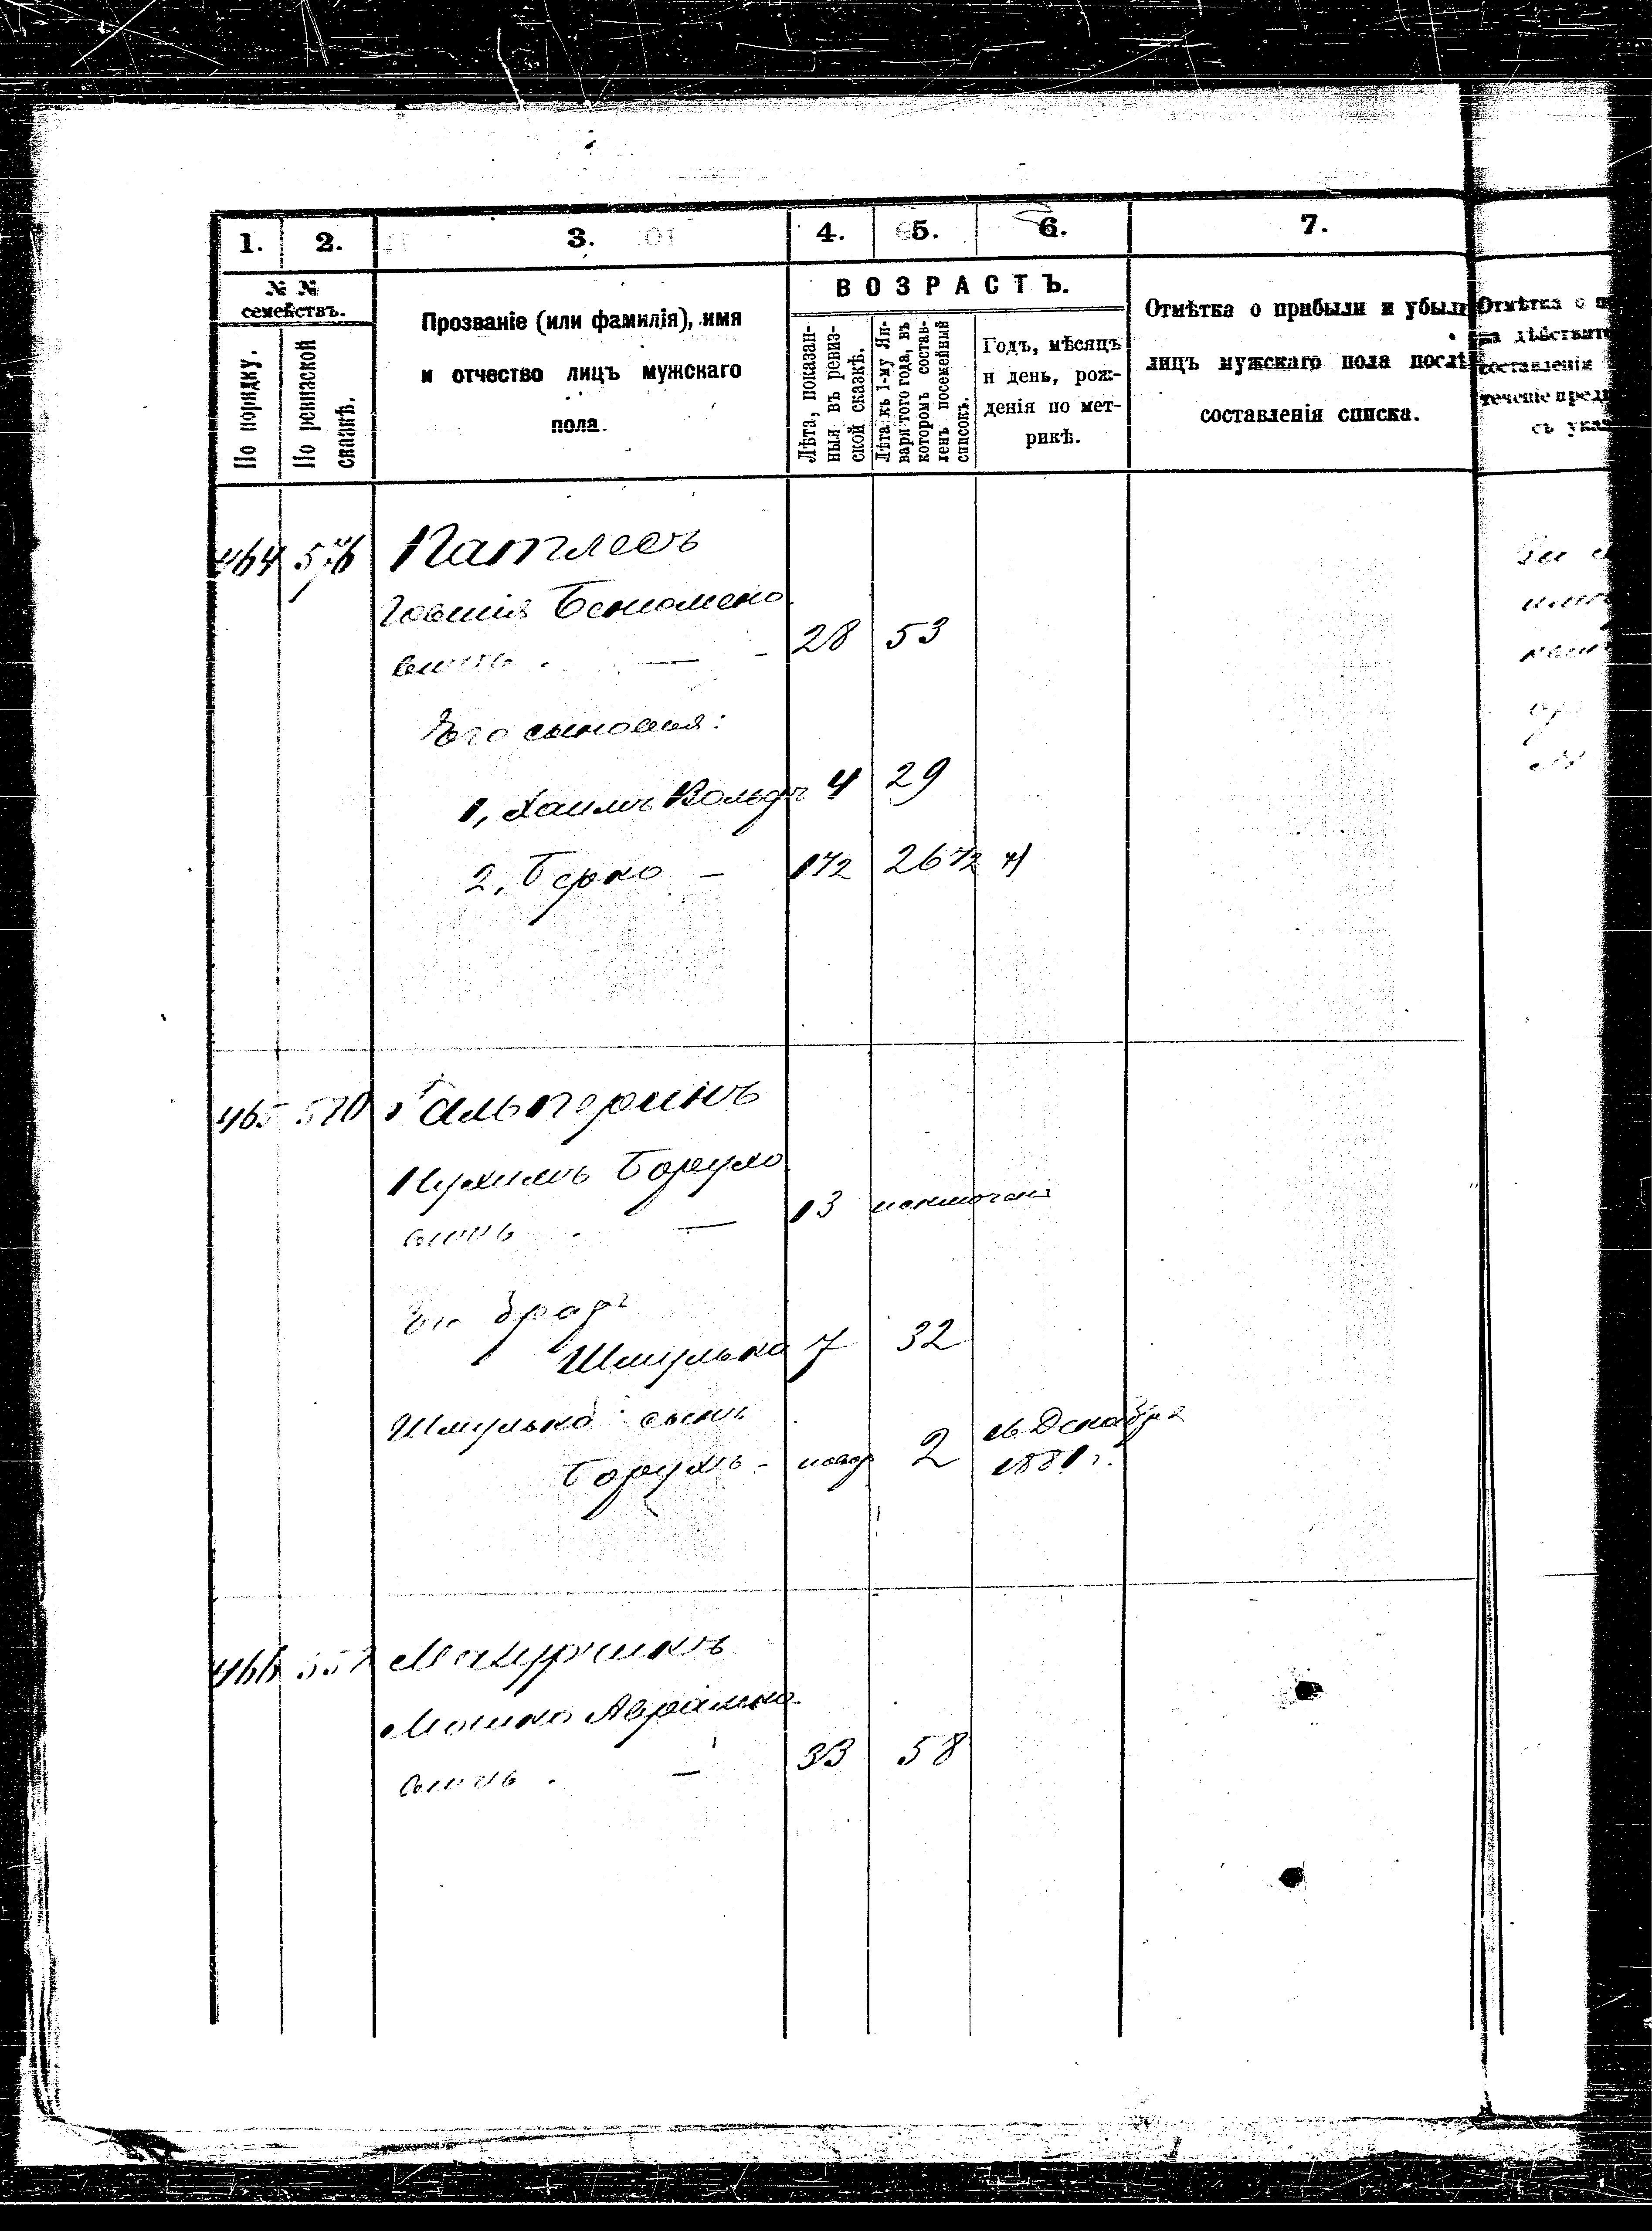 1. 2. 3. 4. 5. 6. 7.
№ № семействъ.
По порядку.
По ревизской сказкѣ.
Прозваніе (или фамилія), имя
и отчество лицъ мужскаго
пола.
ВОЗРАСТЪ.
Лѣта, показан-
ныя въ ревиз-
ской сказкѣ.
Лѣта къ 1-му Ян-
варя того года, въ
которомъ состав-
ленъ посемейный
списокъ.
Годъ, мѣсяцъ
и день, рож-
денія по мет-
рикѣ.
Отмѣтка о прибыли и убыли
лицъ мужскаго пола послѣ
составленія списка.
Отмѣтка о
на дѣйствит
составленія
теченіе пред
съ указ
464 576 Патлесъ
Говшія Беніомено
вичъ. — 28 53
Его сыновья:
1, Хаимъ Вольфъ 4 29
2, Берко — 1 1/2 26 1/2
465 570 Гальперинъ
Нухимъ Борухо
вичъ — 13 исключенъ
Его братъ
Шмулько 7 32
Шмулька сынъ
Борухъ - новор 2 16 Декабря
1881 г.
466 557 Мазурчикъ
Мошко Аврамко
вичъ. — 33 58